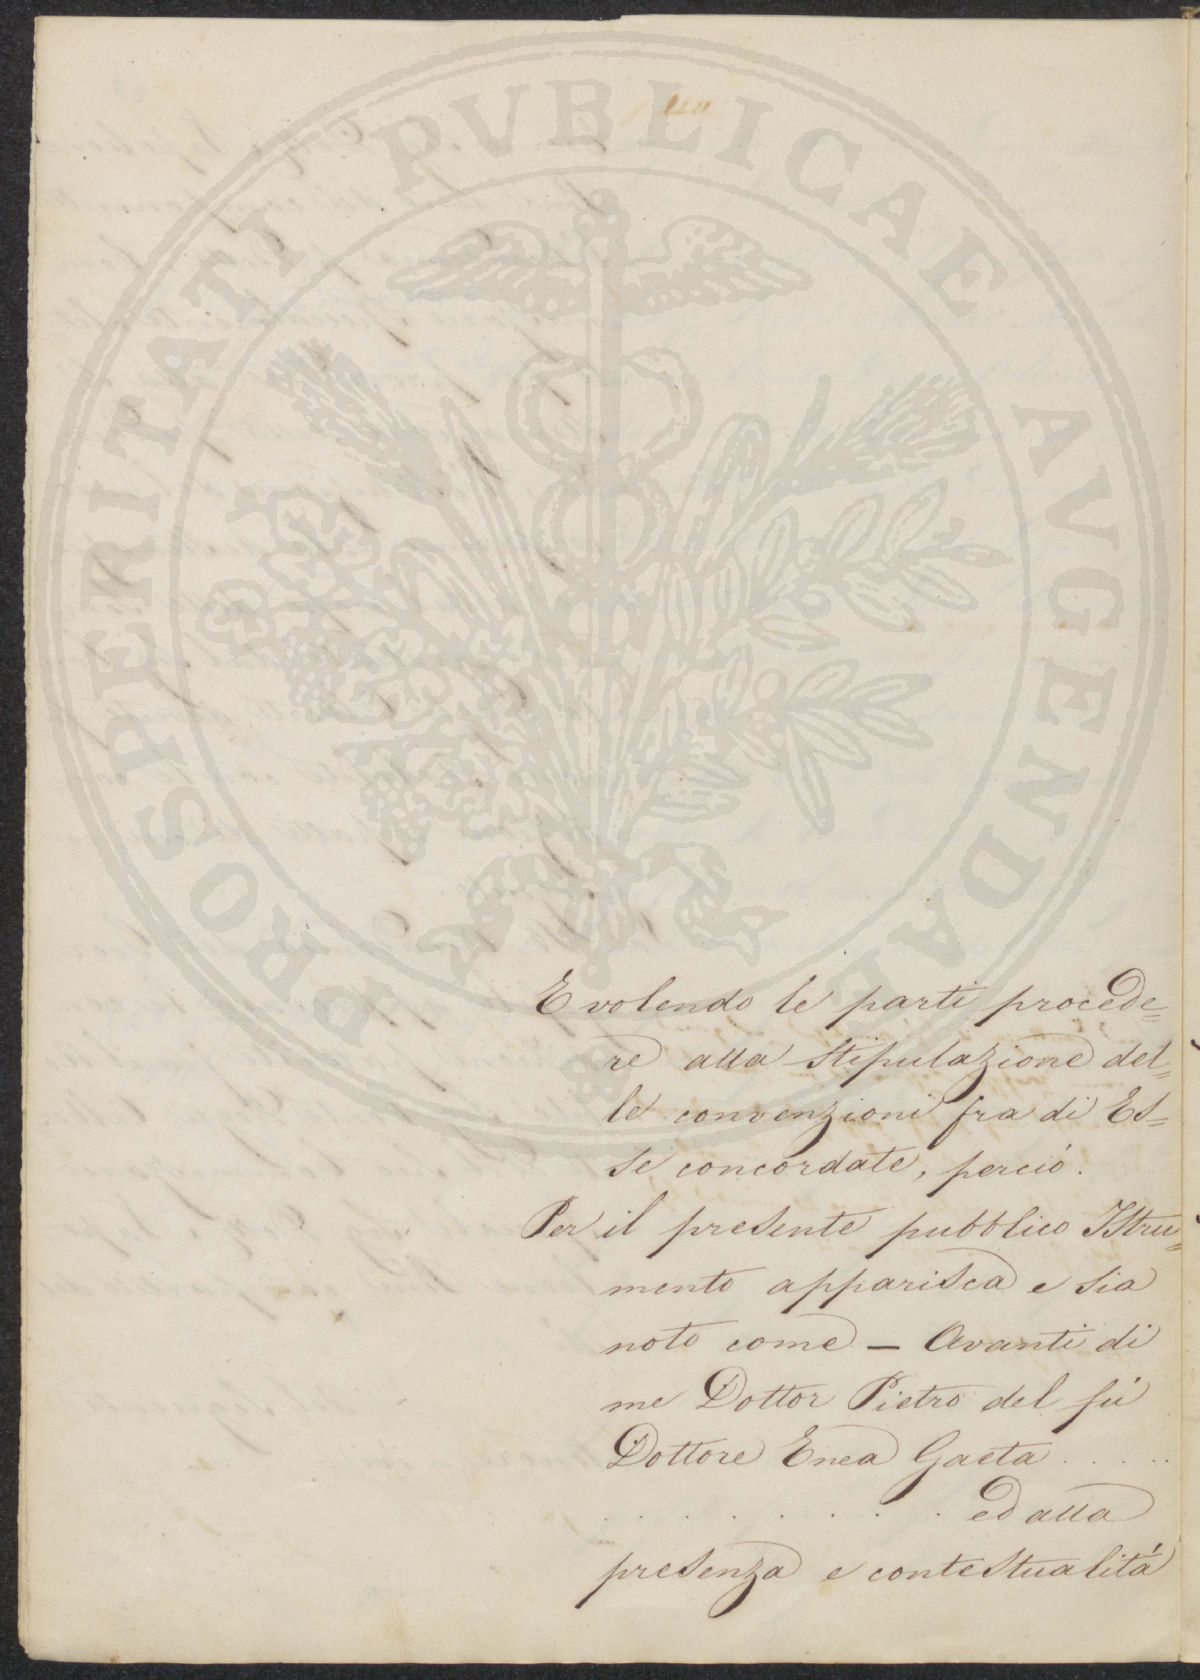 PROSPERITATI PVBLICAE AVGENDAE
E volendo le parti procede=
re alla stipulazione del=
le convenzioni fra di Es=
se concordate, perciò.
Per il presente pubblico Istru=
mento apparisca e sia
noto come — Avanti di
me Dottor Pietro del fù
Dottore Enea Gaeta . . . . .
. . . . . . . . ed alla
presenza e contestualità